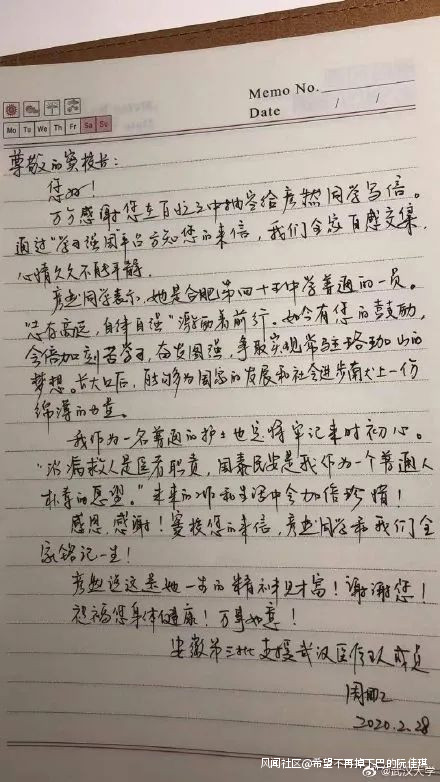 Memo No.
Date / /
Mo Tu We Th Fr Sa Su
尊敬的窦校长：
您好！
万分感谢您在百忙之中抽空给彦然同学写信。
通过“学习强国”平台方知您的来信，我们全家百感交集，
心情久久不能平静。
彦然同学表示，她是合肥第四十五中学普通的一员。
“志存高远，自律自强”激励着前行。如今有您的鼓励，
会倍加刻苦学习，奋发图强，争取实现常驻珞珈山的
梦想。长大后，能够为国家的发展和社会进步献上一份
绵薄的力量。
我作为一名普通的护士也定将牢记来时初心。
“治病救人是医者职责，国泰民安是我作为一个普通人
朴素的愿望。”未来的工作和生活中会加倍珍惜！
感恩，感谢！窦校长的来信，彦然同学和我们全
家铭记一生！
彦然说这是她一生的精神财富！谢谢您！
祝福您身体健康！万事如意！
安徽第三批支援武汉医疗队成员
周
2020.2.28
风闻社区@希望不再掉下巴的阮佳琪
@武汉大学